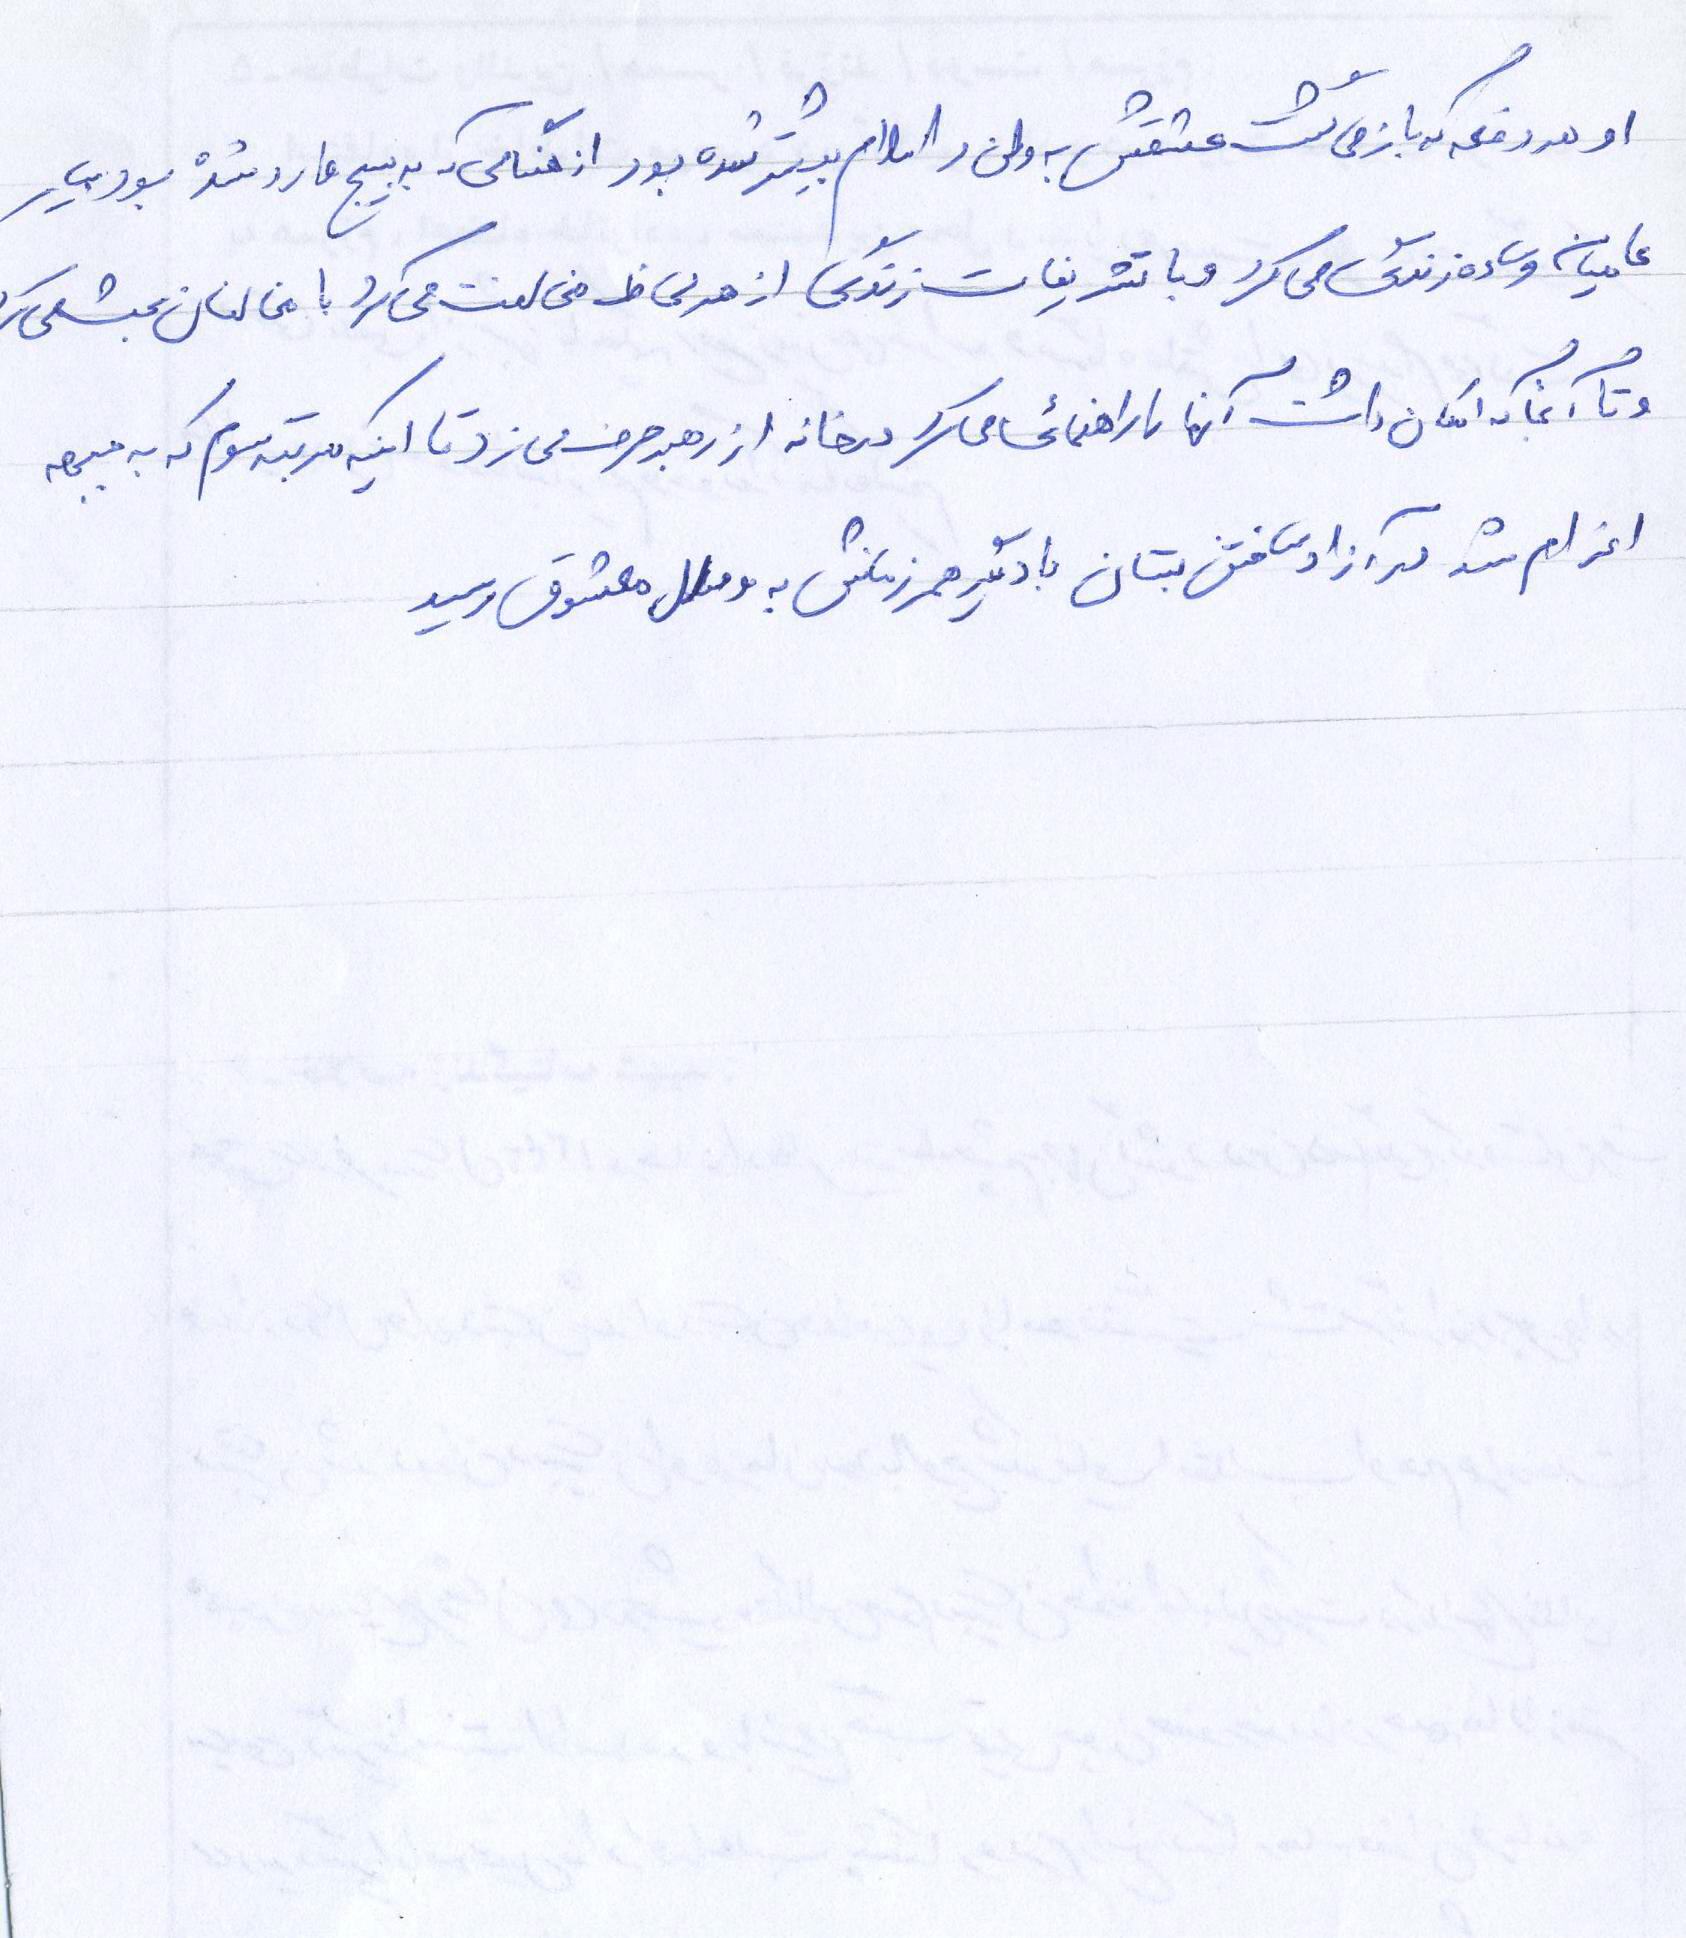 او هر دفعه که باز می گشت عشقش به وطن و اسلام بیشتر شده بود از هنگامی که به بسیج وارد شده بود بسیار
عامیانه و ساده زندگی می کرد و با تشریفات زندگی از هر لحاظ مخالفت می کرد با مخالفان بحث می کرد
و تا آنجا که امکان داشت آنها را راهنمائی می کرد در خانه از رهبر حرف می زد تا اینکه مرتبه سوم که به جبهه
اعزام شد در آزاد ساختن بستان با دیگر همرزمانش به وصال معشوق رسید